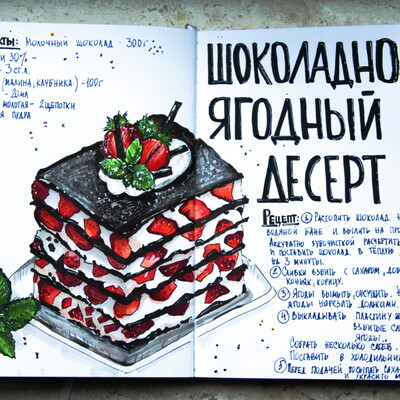 КТЫ: Молочный шоколад - 300г
и 30% -
- 3 ст.л.
(малина, клубника) - 100г
- 20мл
молотая - 2 щепотки
я пудра
ШОКОЛАДНО
ЯГОДНЫЙ
ДЕСЕРТ
Рецепт: ① Растопить шоколад н
водяной бане и вылить на пр
Аккуратно зубочисткой расчертить
и поставить шоколад в тёплую
на 3 минуты.
② Сливки взбить с сахаром, до
коньяк, корицу.
③ Ягоды вымыть, обсушить.
Ягоды нарезать дольками.
④ Выкладывать пластину ш
взбитые сл
ягоды.
Собрать несколько слоёв.
Поставить в холодильни
⑤ Перед подачей посыпать саха
и украсить м